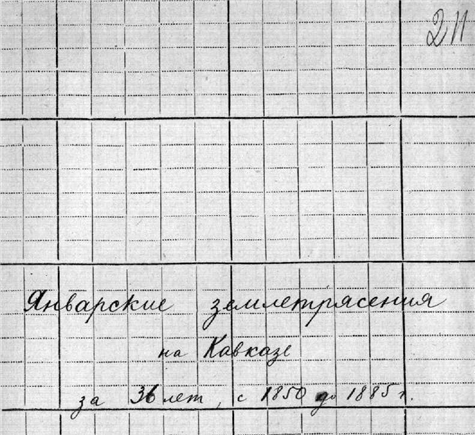 211
Январские землетрясения
на Кавказе
за 36 лет, с 1850 до 1885 г.